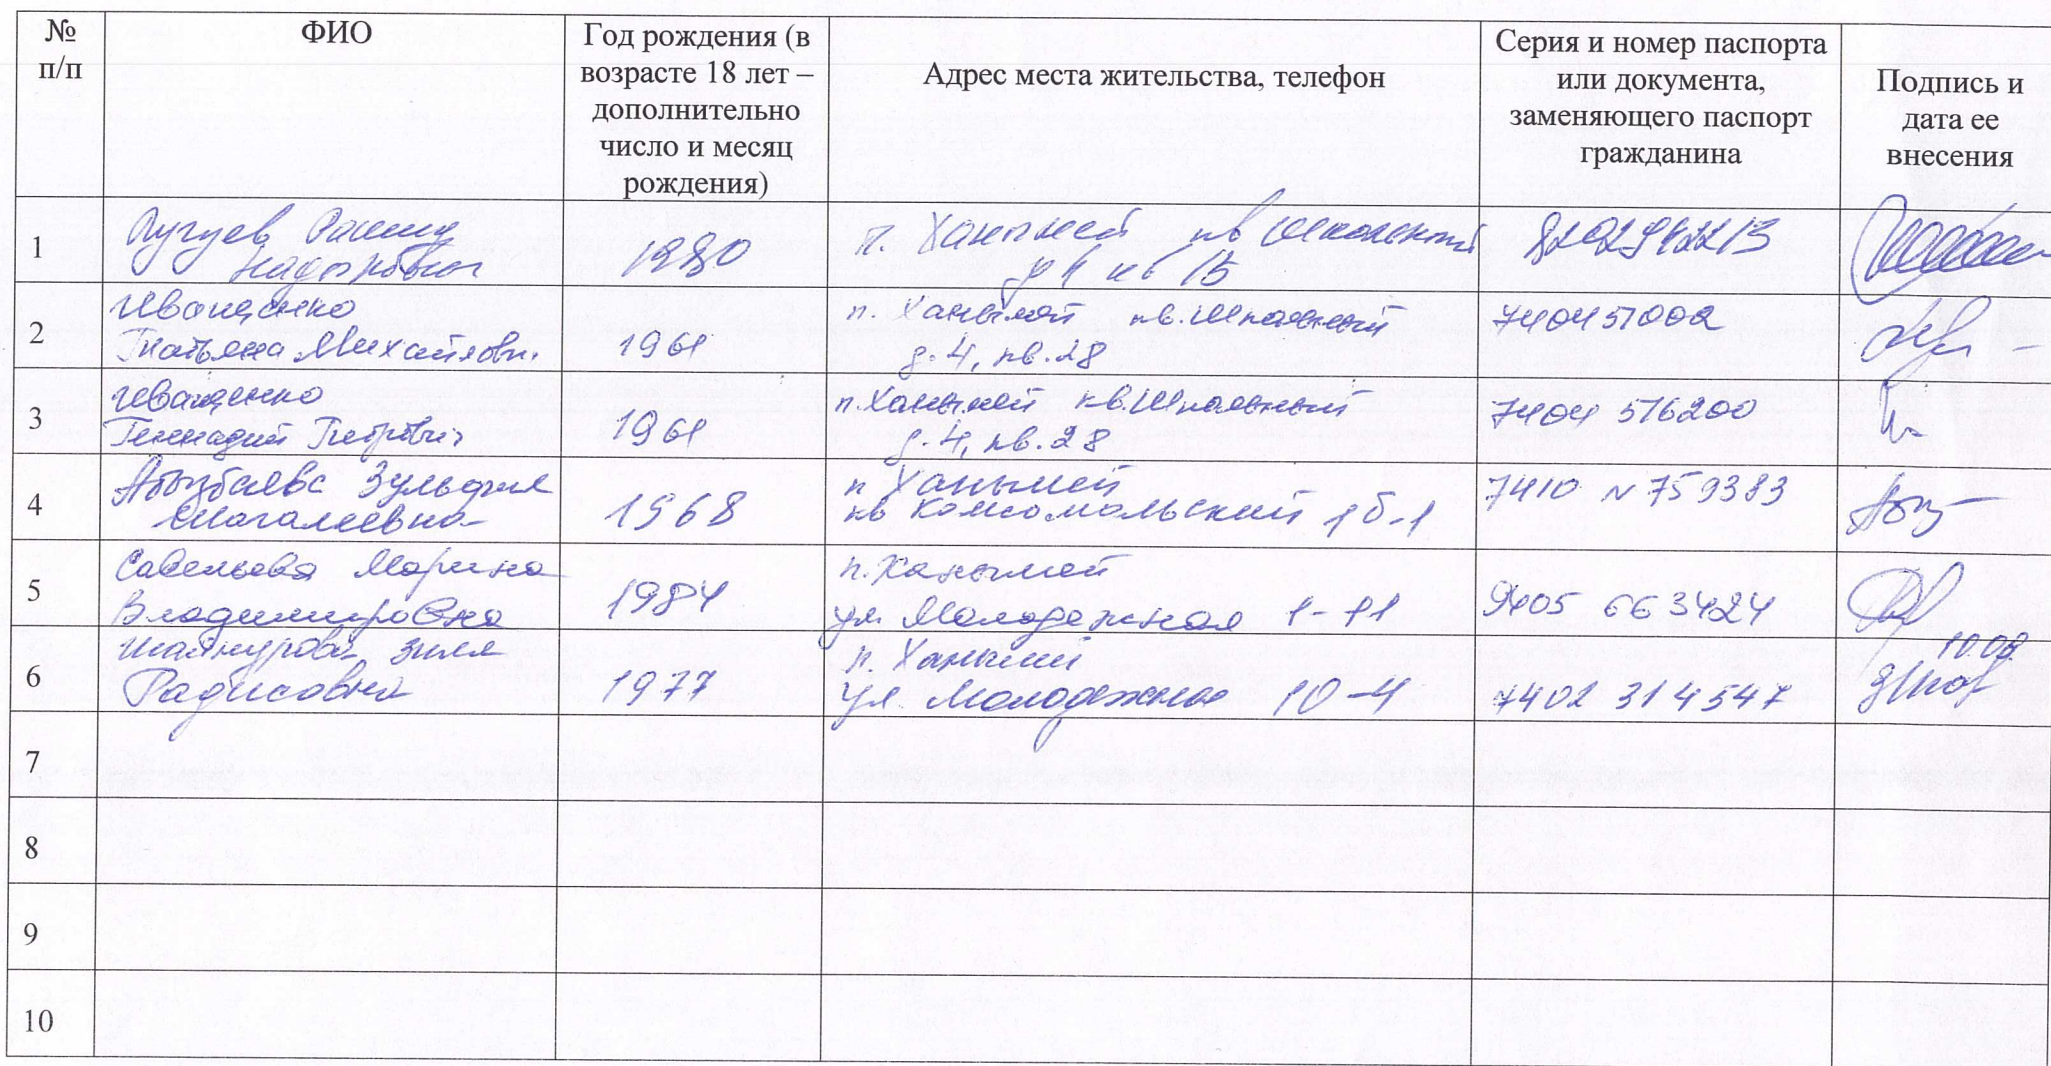 № п/п
ФИО
Год рождения (в возрасте 18 лет – дополнительно число и месяц рождения)
Адрес места жительства, телефон
Серия и номер паспорта или документа, заменяющего паспорт гражданина
Подпись и дата ее внесения
1
1980
п. Ханымей кв Школьный
кв 15
2
Иващенко
Татьяна Михайловн.
1961
п. Ханымей кв. Школьный
д. 4, кв. 28
3
Иващенко
Геннадий Петрович
1961
п. Ханымей кв. Школьный
д. 4, кв. 28
7404 576200
4
Абызбаева Зульфия
1968
п Ханымей
кв Комсомольский 1б-1
7410 N 759383
5
Савельева Марина
Владимировна
1984
п. Ханымей
ул. Молодежная 1-11
9405 663424
6
Шайнурова Зиля
Радисовна
1977
п. Ханымей
ул. Молодежная 10-4
7402 314547
7
8
9
10